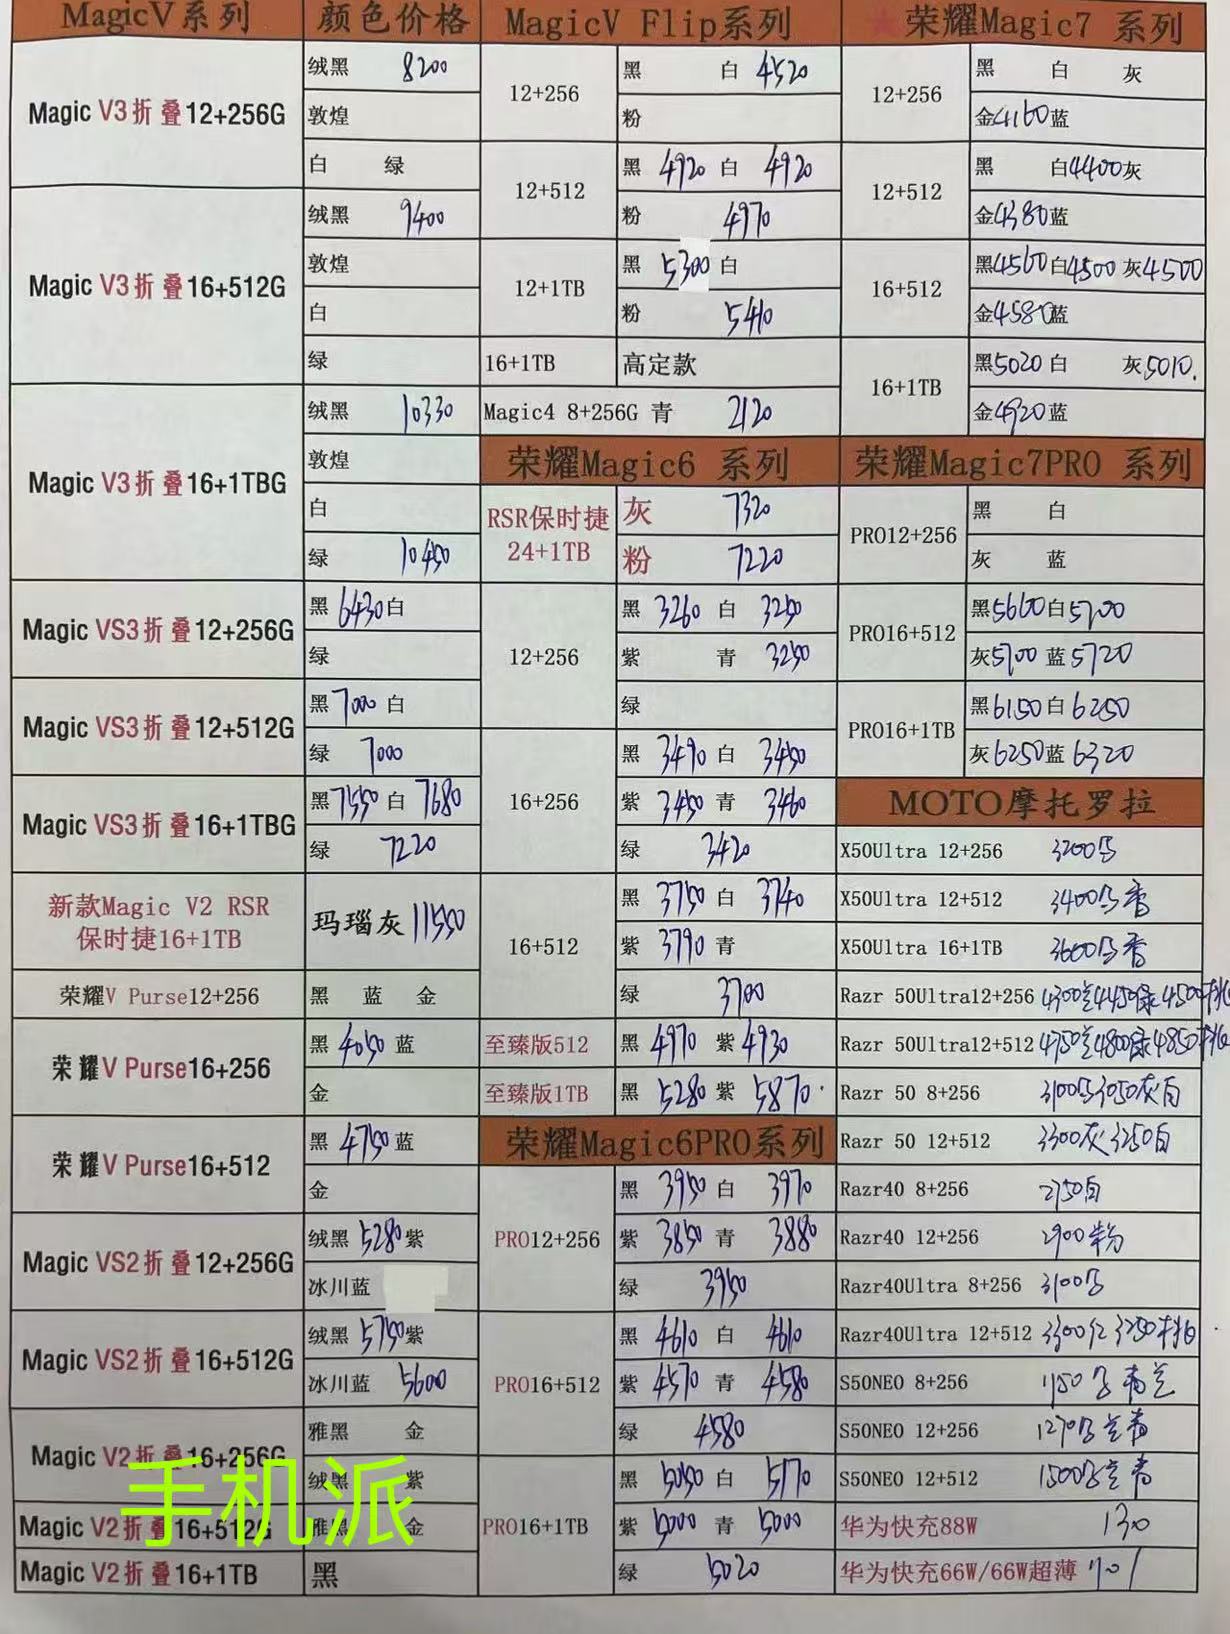 MagicV系列 颜色价格
Magic V3折叠12+256G 绒黑 8200
敦煌
白 绿
Magic V3折叠16+512G 绒黑 9400
敦煌
白
绿
Magic V3折叠16+1TBG 绒黑 10330
敦煌
白
绿 10450
Magic VS3折叠12+256G 黑6430白
绿
Magic VS3折叠12+512G 黑7000白
绿 7000
Magic VS3折叠16+1TBG 黑7550白 7680
绿 7220
新款Magic V2 RSR
保时捷16+1TB 玛瑙灰 11550
荣耀V Purse12+256 黑 蓝 金
荣耀V Purse16+256 黑 4050 蓝
金
荣耀V Purse16+512 黑 4750 蓝
金
Magic VS2折叠12+256G 绒黑 5280紫
冰川蓝
Magic VS2折叠16+512G 绒黑 5750紫
冰川蓝 5600
Magic V2折叠16+256G 雅黑 金
绒黑 紫
Magic V2折叠16+512G 雅黑 金
Magic V2折叠16+1TB 黑
手机派
MagicV Flip系列
12+256 黑 白 4520
粉
12+512 黑 4920 白 4920
粉 4970
12+1TB 黑 5300 白
粉 5410
16+1TB 高定款
Magic4 8+256G 青 2120
荣耀Magic6 系列
RSR保时捷
24+1TB 灰 7320
粉 7220
12+256 黑 3260 白 3250
紫 青 3250
绿
16+256 黑 3490 白 3450
紫 3450 青 3460
绿 3420
16+512 黑 3750 白 3740
紫 3790 青
绿 3700
至臻版512 黑 4970 紫 4930
至臻版1TB 黑 5280 紫 5870
荣耀Magic6PRO系列
PRO12+256 黑 3950 白 3970
紫 3850 青 3880
绿 3950
PRO16+512 黑 4610 白 4610
紫 4570 青 4580
绿 4580
PRO16+1TB 黑 5050 白 5170
紫 5000 青 5000
绿 5020
★荣耀Magic7 系列
12+256 黑 白 灰
金4160蓝
12+512 黑 白4400灰
金4380蓝
16+512 黑4560白4500 灰4500
金4580蓝
16+1TB 黑5020白 灰5010.
金4920蓝
荣耀Magic7PRO 系列
PRO12+256 黑 白
灰 蓝
PRO16+512 黑5660白5700
灰5700 蓝5720
PRO16+1TB 黑6150白6250
灰6250蓝6320
MOTO摩托罗拉
X50Ultra 12+256 3200
X50Ultra 12+512 3400
X50Ultra 16+1TB 3600
Razr 50Ultra12+256 4300 4450 4500
Razr 50Ultra12+512 4750 4800 4850
Razr 50 8+256 3100 3050灰白
Razr 50 12+512 3300灰 3250白
Razr40 8+256 2750白
Razr40 12+256 2900粉
Razr40Ultra 8+256 3100
Razr40Ultra 12+512 3300红 3250
S50NEO 8+256 1150
S50NEO 12+256 1270
S50NEO 12+512 1500
华为快充88W 130
华为快充66W/66W超薄